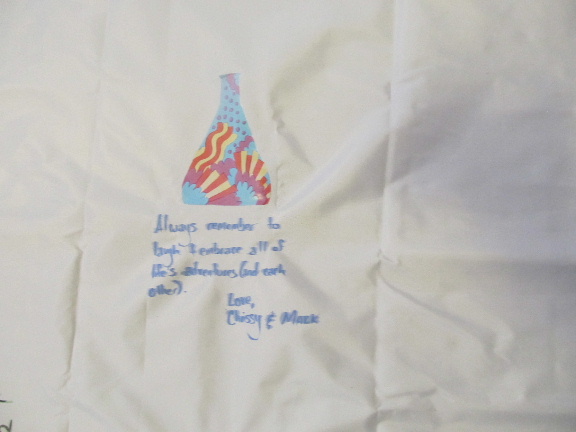 Always remember to
laugh & embrace all of
life's adventures (and each
other).
Love,
Chrissy & Mark